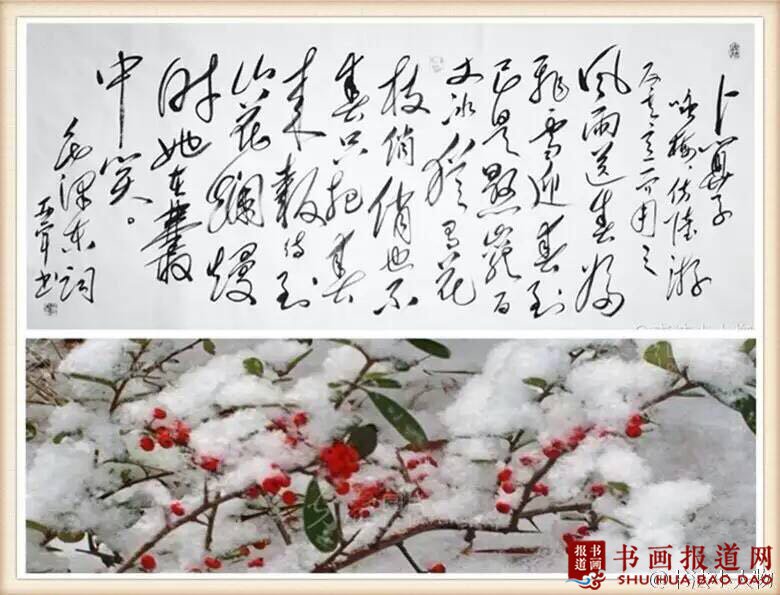 卜算子
咏梅·仿陆游
反其意而用之
風雨送春归
飛雪迎春到
已是悬崖百
丈冰犹有花
枝俏俏也不
春只把春
来報待到
山花爛熳
时她在叢
中笑。
毛泽东词
书
书画报道
书画报道网
SHU HUA BAO DAO